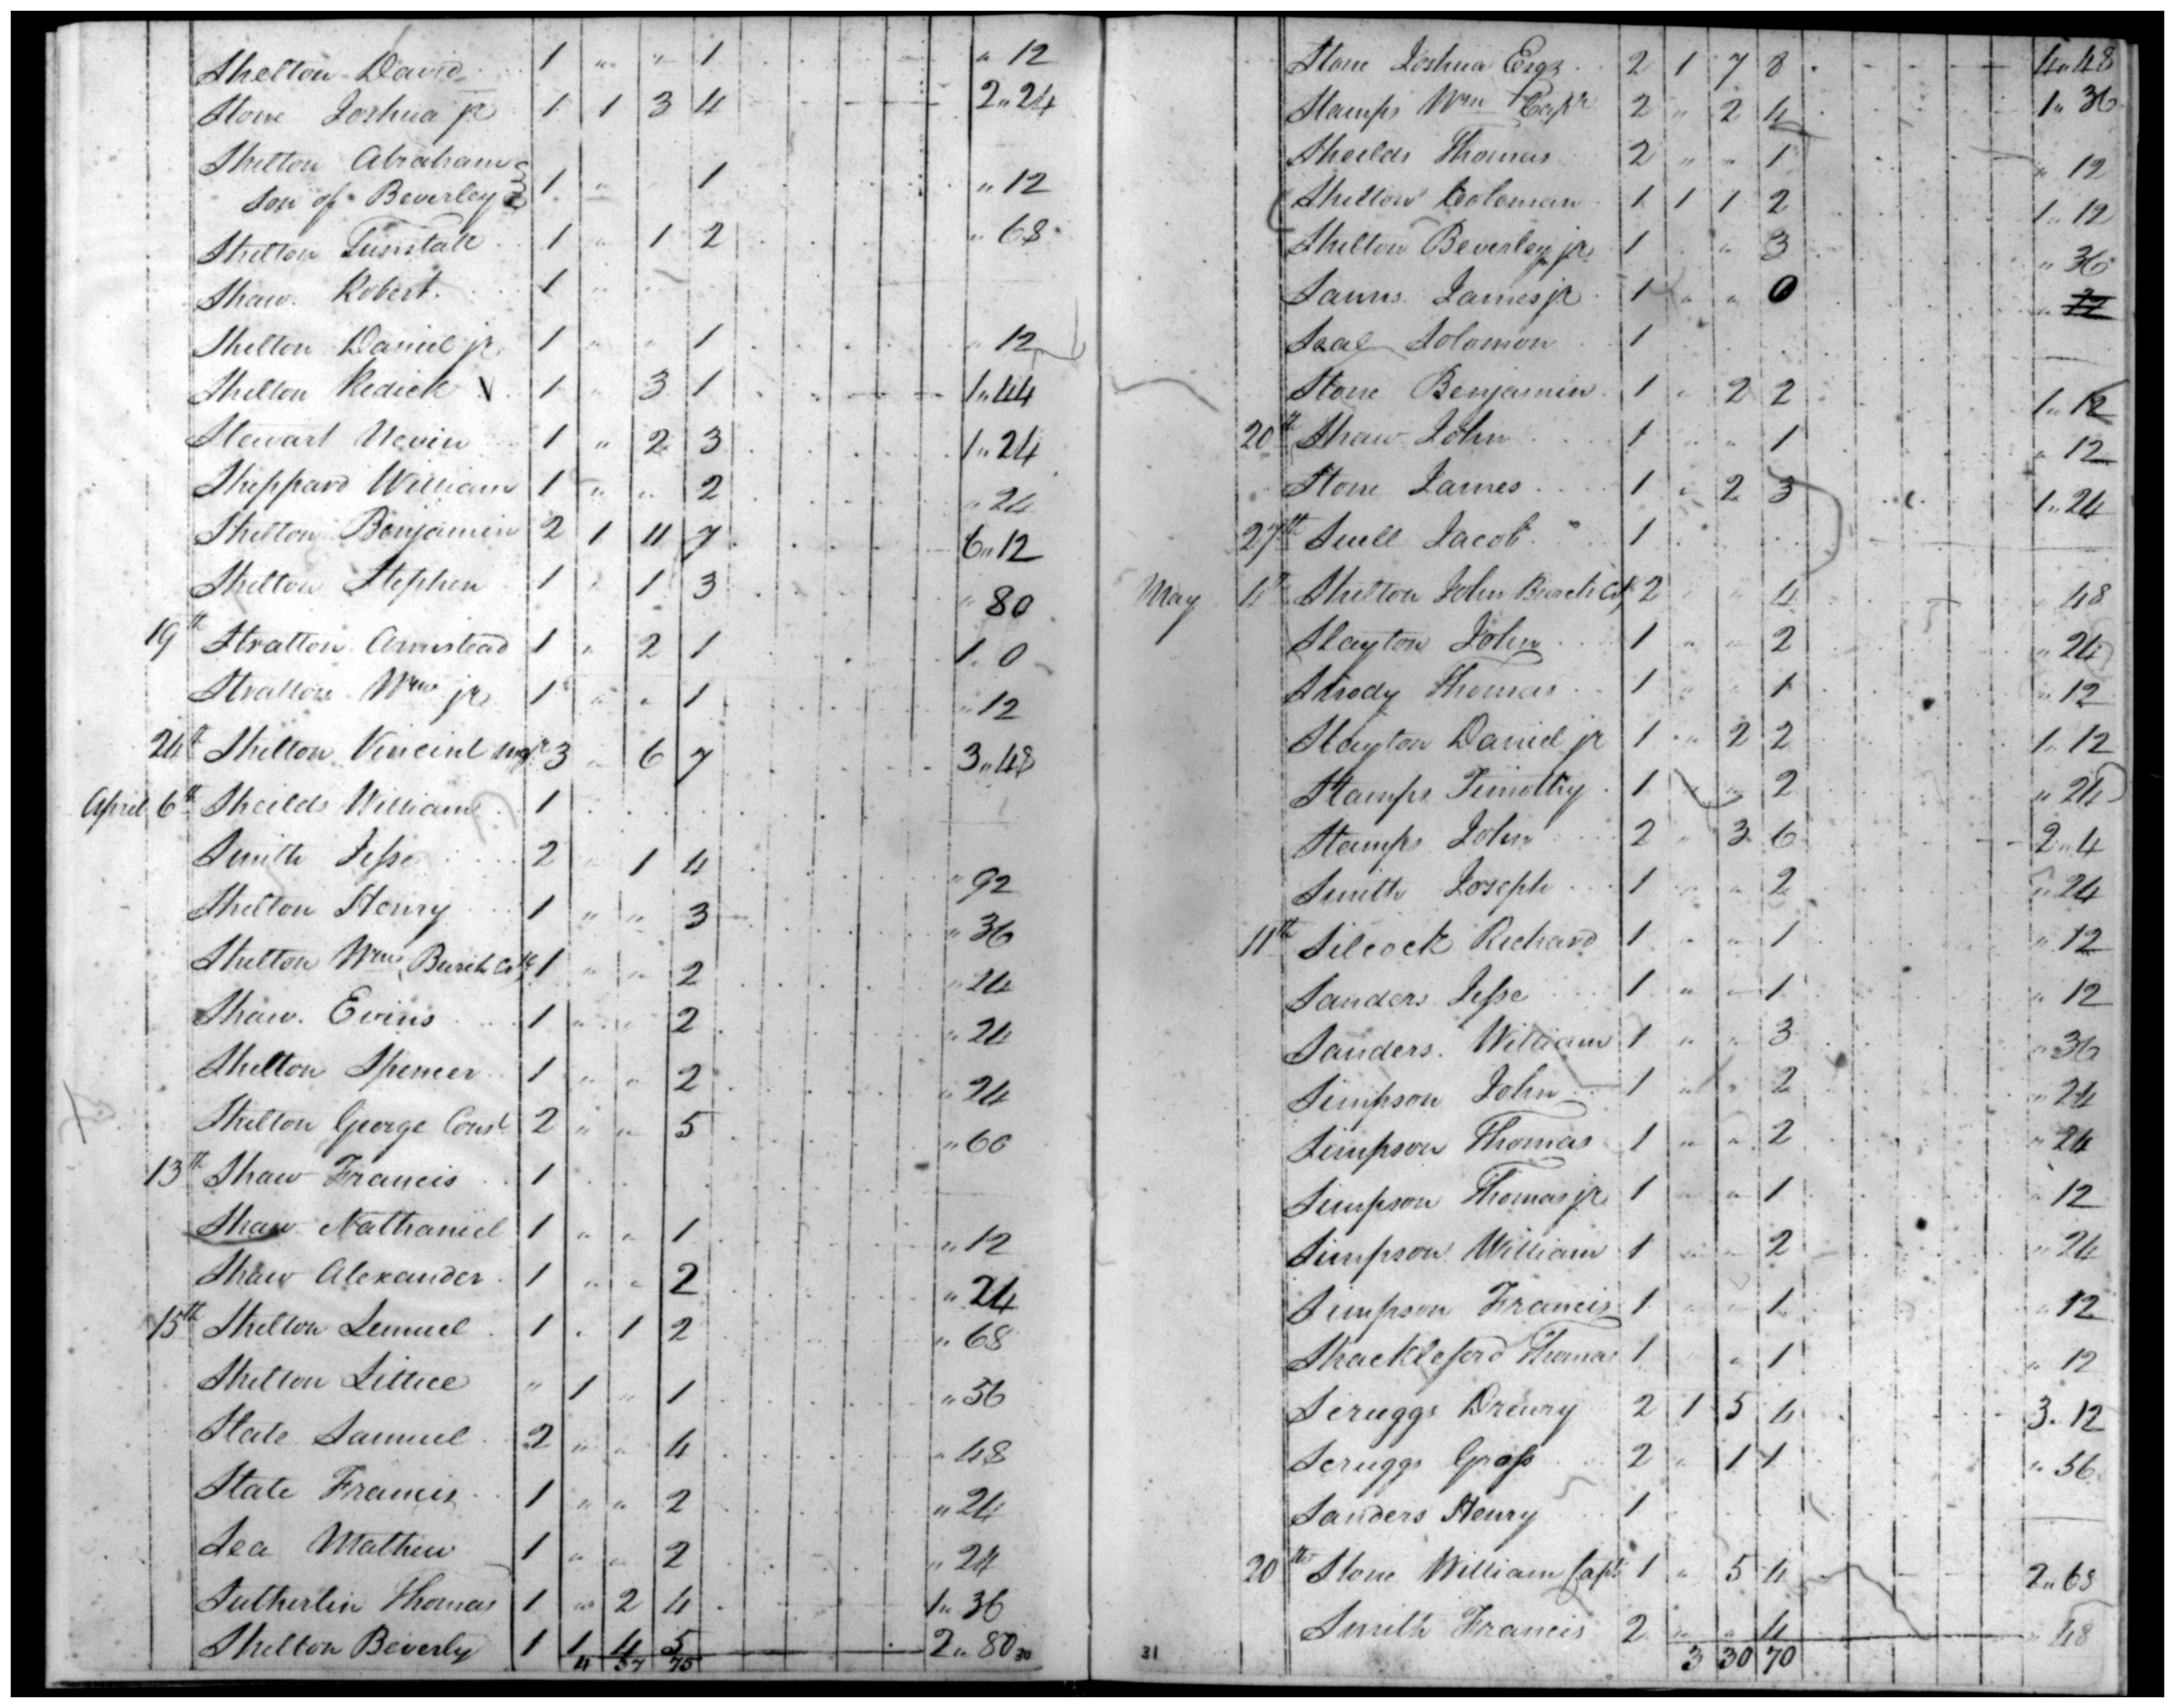 Shelton David 1 " " 1 " 12
Stone Joshua jr 1 1 3 4 2" 24
Shelton Abraham
son of Beverley 1 " 1 " 12
Shelton Tunstall 1 " 1 2 " 68
Shaw Robert 1 "
Shelton Daniel jr 1 " " 1 " 12
Shelton Redick V 1 " 3 1 1" 44
Stewart Nevin 1 " 2 3 1" 24
Sheppard William 1 " " 2 " 24
Shelton Benjamin 2 1 11 7 6" 12
Shelton Stephen 1 " 1 3 " 80
19th Stratton Armstead 1 " 2 1 1" 0
Stratton Wm jr 1 " " 1 " 12
24th Shelton Vincint 3 " 6 7 3" 48
April 6th Sheilds William 1
Smith Jesse 2 " 1 4 " 92
Shelton Henry 1 " " 3 " 36
Shelton Wm Burch Ck 1 " " 2 " 24
Shaw Evins 1 " " 2 " 24
Shelton Spencer 1 " " 2 " 24
Shelton George Const 2 " " 5 " 60
13th Shaw Francis 1
Shaw Nathaniel 1 " " 1 " 12
Shaw Alexander 1 " " 2 " 24
15th Shelton Lemuel 1 " 1 2 " 68
Shelton Lettice " 1 " 1 " 56
Slate Samuel 2 " " 4 " 48
Slate Francis 1 " " 2 " 24
Sea Mathew 1 " " 2 " 24
Sutherlin Thomas 1 " 2 4 1" 36
Shelton Beverly 1 1 4 5 2" 80
4 57 75
30
Stone Joshua Esqr 2 1 7 8 4" 48
Stamps Wm Capt 2 " 2 4 1" 36
Sheilds Thomas 2 " " 1 " 12
Shelton Coleman 1 1 1 2 1" 12
Shelton Beverley jr 1 " " 3 " 36
Sanns James jr 1 " " 0 " 12
Seal Solomon 1
Stone Benjamin 1 " 2 2 1" 12
20th Shaw John 1 " " 1 " 12
Stone James 1 " 2 3 1" 24
27th Snell Jacob 1
May 4th Shelton John Burch Ck 2 " " 4 " 48
Slayton John 1 " " 2 " 24
Thomas 1 " " 1 " 12
Slayton Daniel jr 1 " 2 2 1" 12
Stamps Timothy 1 " " 2 " 24
Stamps John 2 " 3 6 2" 4
Smith Joseph 1 " " 2 " 24
11th Silcock Richard 1 " " 1 " 12
Sanders Jesse 1 " " 1 " 12
Sanders William 1 " " 3 " 36
Simpson John 1 " " 2 " 24
Simpson Thomas 1 " " 2 " 24
Simpson Thomas jr 1 " " 1 " 12
Simpson William 1 " " 2 " 24
Simpson Francis 1 " " 1 " 12
Shackleford Thomas 1 " " 1 " 12
Scruggs Drewry 2 1 5 4 3" 12
Scruggs Gross 2 " 1 1 " 56
Sanders Henry 1
20th Stone William Capt 1 " 5 4 2" 68
Smith Francis 2 " " 4 " 48
31
3 30 70